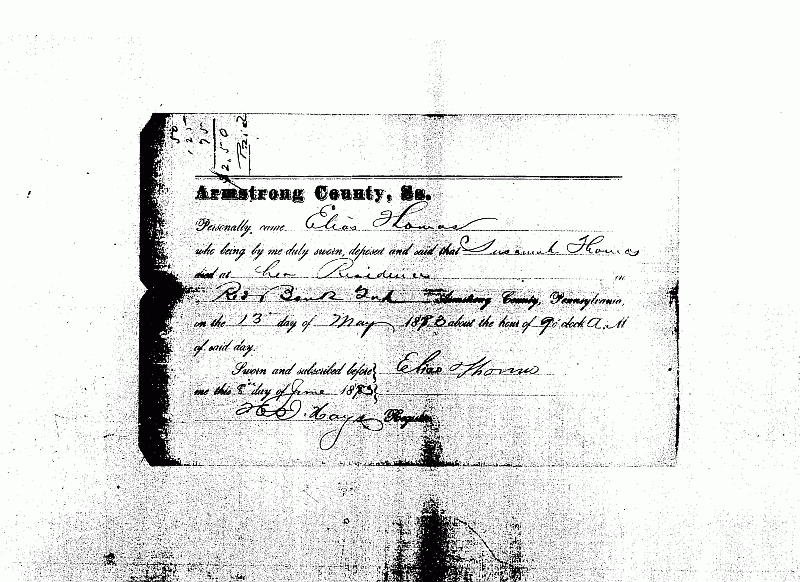 50
1.25
75
$2.50
Paid
Armstrong County, Ss.
Personally came Elias Thomas
who being by me duly sworn, deposed and said that Susannah Thomas
died at her Residence in
Red Bank Armstrong County, Pennsylvania,
on the 13" day of May 1883 about the hour of 9 o'clock A.M
of said day.
Sworn and subscribed before Elias Thomas
me this 8" day of June 1883
Hays Register